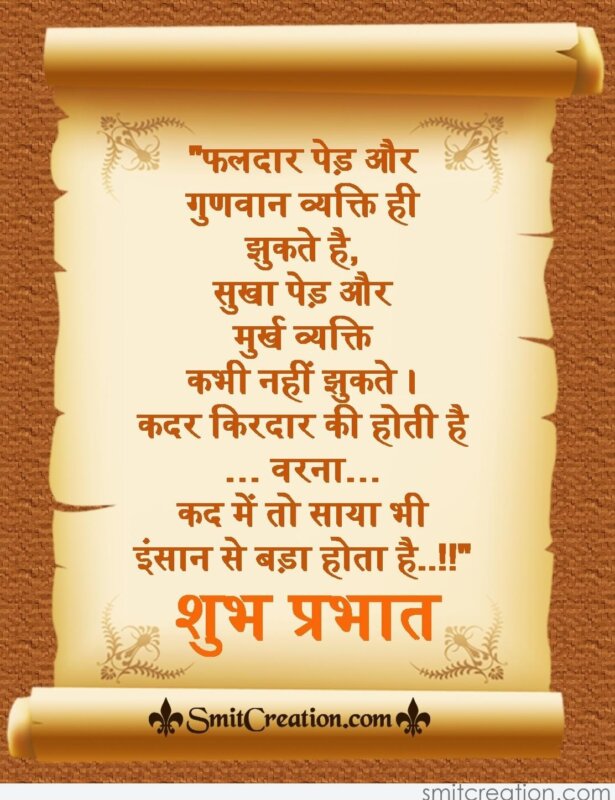 "फलदार पेड़ और
गुणवान व्यक्ति ही
झुकते है,
सुखा पेड़ और
मुर्ख व्यक्ति
कभी नहीं झुकते ।
कदर किरदार की होती है
... वरना...
कद में तो साया भी
इंसान से बड़ा होता है..!!"
शुभ प्रभात
SmitCreation.com
smitcreation.com